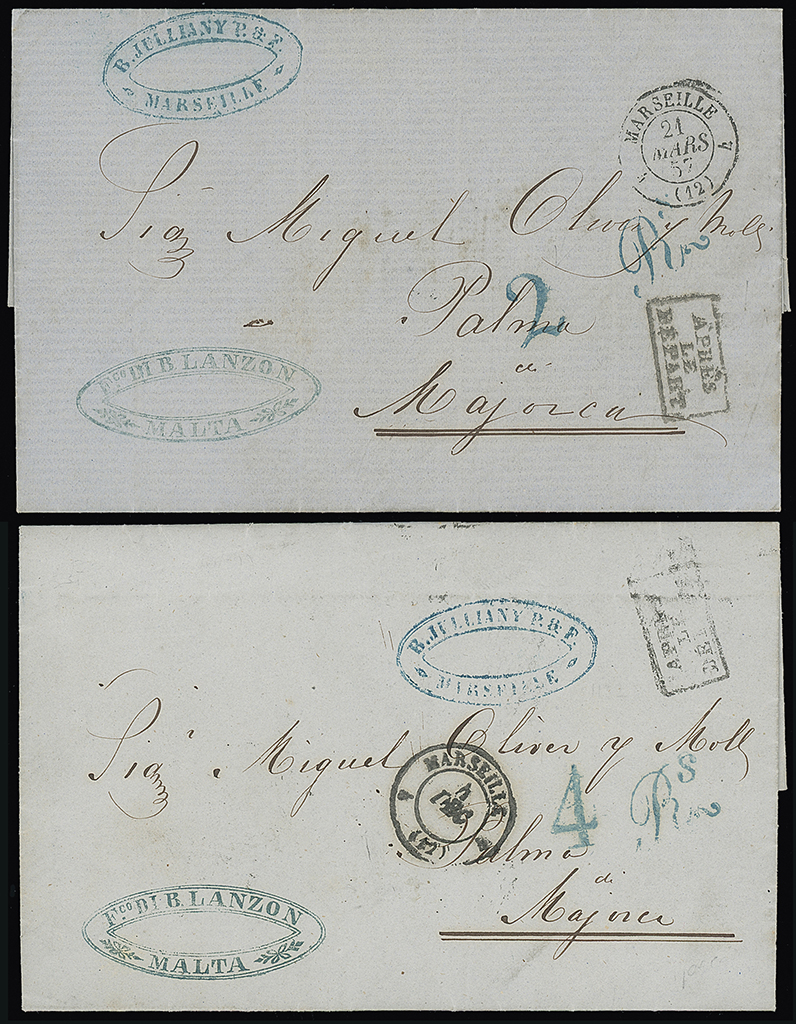 B. JULLIANY P. & F.
MARSEILLE
MARSEILLE
21
MARS
57
(12)
Sigr Miguel Oliver y Moll
Rs
2
Palma
di
Majorca
APRÈS
LE
DÉPART
Fco DI B. LANZON
MALTA
B. JULLIANY P. & F.
MARSEILLE
APRÈS
LE
Sigr Miguel Oliver y Moll
MARSEILLE
4
DEC
(12)
4
Rs
Palma
di
Majorca
Fco DI B. LANZON
MALTA